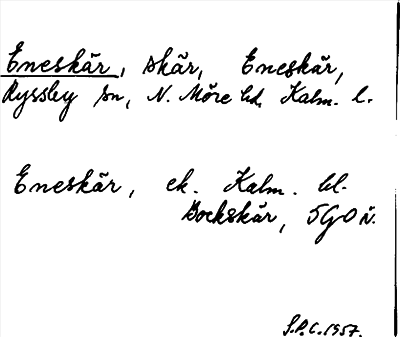 Eneskär, skär, Eneskär,
Ryssby sn, N. Möre hd, Kalm. l.
Eneskär, ek. Kalm. bl.
Bockskär, 5GON.
S.P.C. 1957.